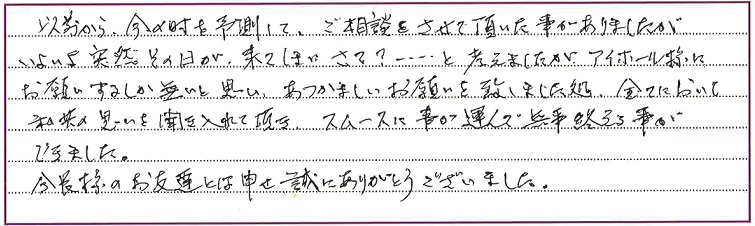 以前から、今の時を予測して、ご相談をさせて頂いた事がありましたが
いよいよ突然その日が、来てしまい さて？‥‥と考えましたが アイホール様に
お願いするしか無いと思い、あつかましいお願いを致しました処、全てにおいて
私共の思いを聞き入れて頂き、スムースに事が運んで無事終る事が
できました。
会長様のお友達とは申せ誠にありがとうございました。